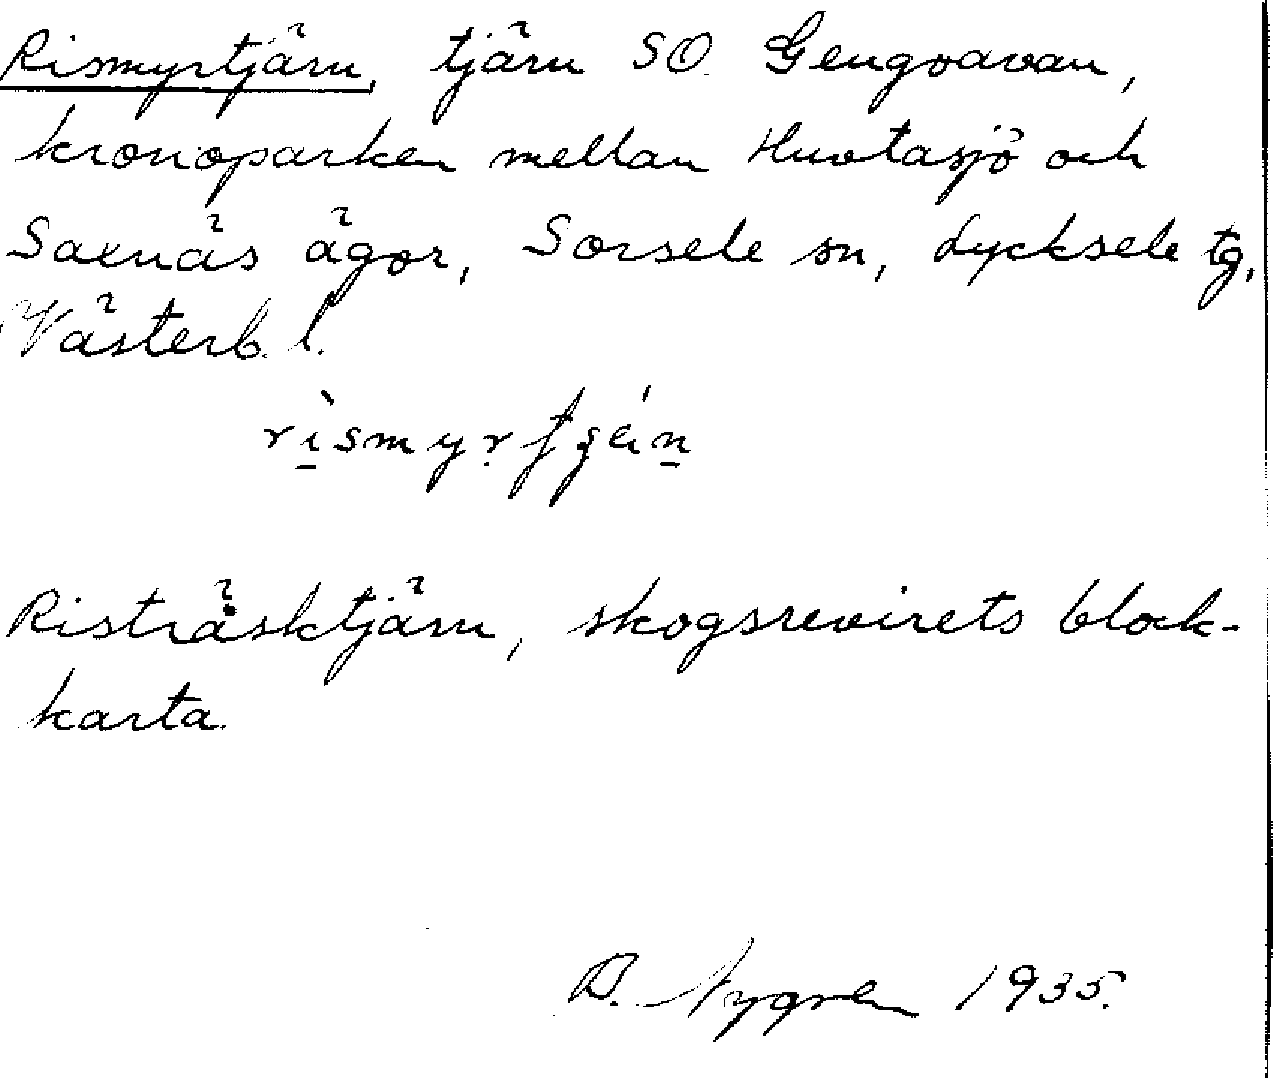 Rismyrtjärn, tjärn SO Gengoavan,
kronoparken mellan Huvtasjö och
Saxnäs ägor, Sorsele sn, Lycksele tg,
Västerb. l.
Risträsktjärn, skogsrevirets block-
karta.
D. Nygren 1935.